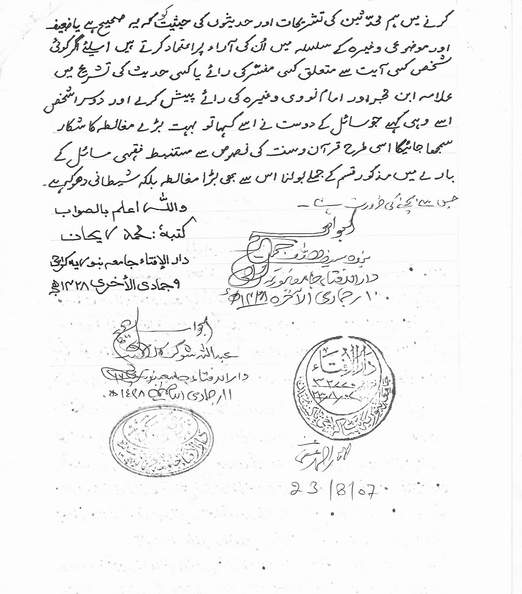 کرنے میں ہم محدثین کی تشریحات اور حدیثوں کی حیثیت کو کہ یہ صحیح ہے یا ضعیف
اور موضوعی وغیرہ کے سلسلہ میں اُن کی آراء پر اعتماد کرتے ہیں اسلئے اگر کوئی
شخص کسی آیت سے متعلق کسی مفسر کی رائے یا کسی حدیث کی تشریح میں
علامہ ابن حجر اور امام نووی وغیرہ کی رائے پیش کرے اور دوسرا شخص
اسے وہی کہے جو سائل کے دوست نے اسے کہا تو بہت بڑے مغالطہ کا شکار
سمجھا جائیگا اسی طرح قرآن و سنت کی نصوص سے مستنبط فقہی مسائل کے
بارے میں مذکور قسم کے جملے بولنا اس سے بھی بڑا مغالطہ بلکہ شیطانی دھوکہ ہے۔
جس سے بچنے کی ضرورت ہے۔
واللہ اعلم بالصواب
کتبہٗ: محمد ریحان
دار الإفتاء جامعہ بنوریہ کراچی
۹ جمادی الأخری ۱۴۲۸ھ
الجواب صحیح
دار الافتاء جامعہ بنوریہ
۱۰ جمادی الآخرہ ۱۴۲۸ھ
الجواب صحیح
عبداللہ شوکت
دار الافتاء جامعہ بنوریہ
۱۱ جمادی الثانی ۱۴۲۸ھ
دار الافتاء
23/8/07